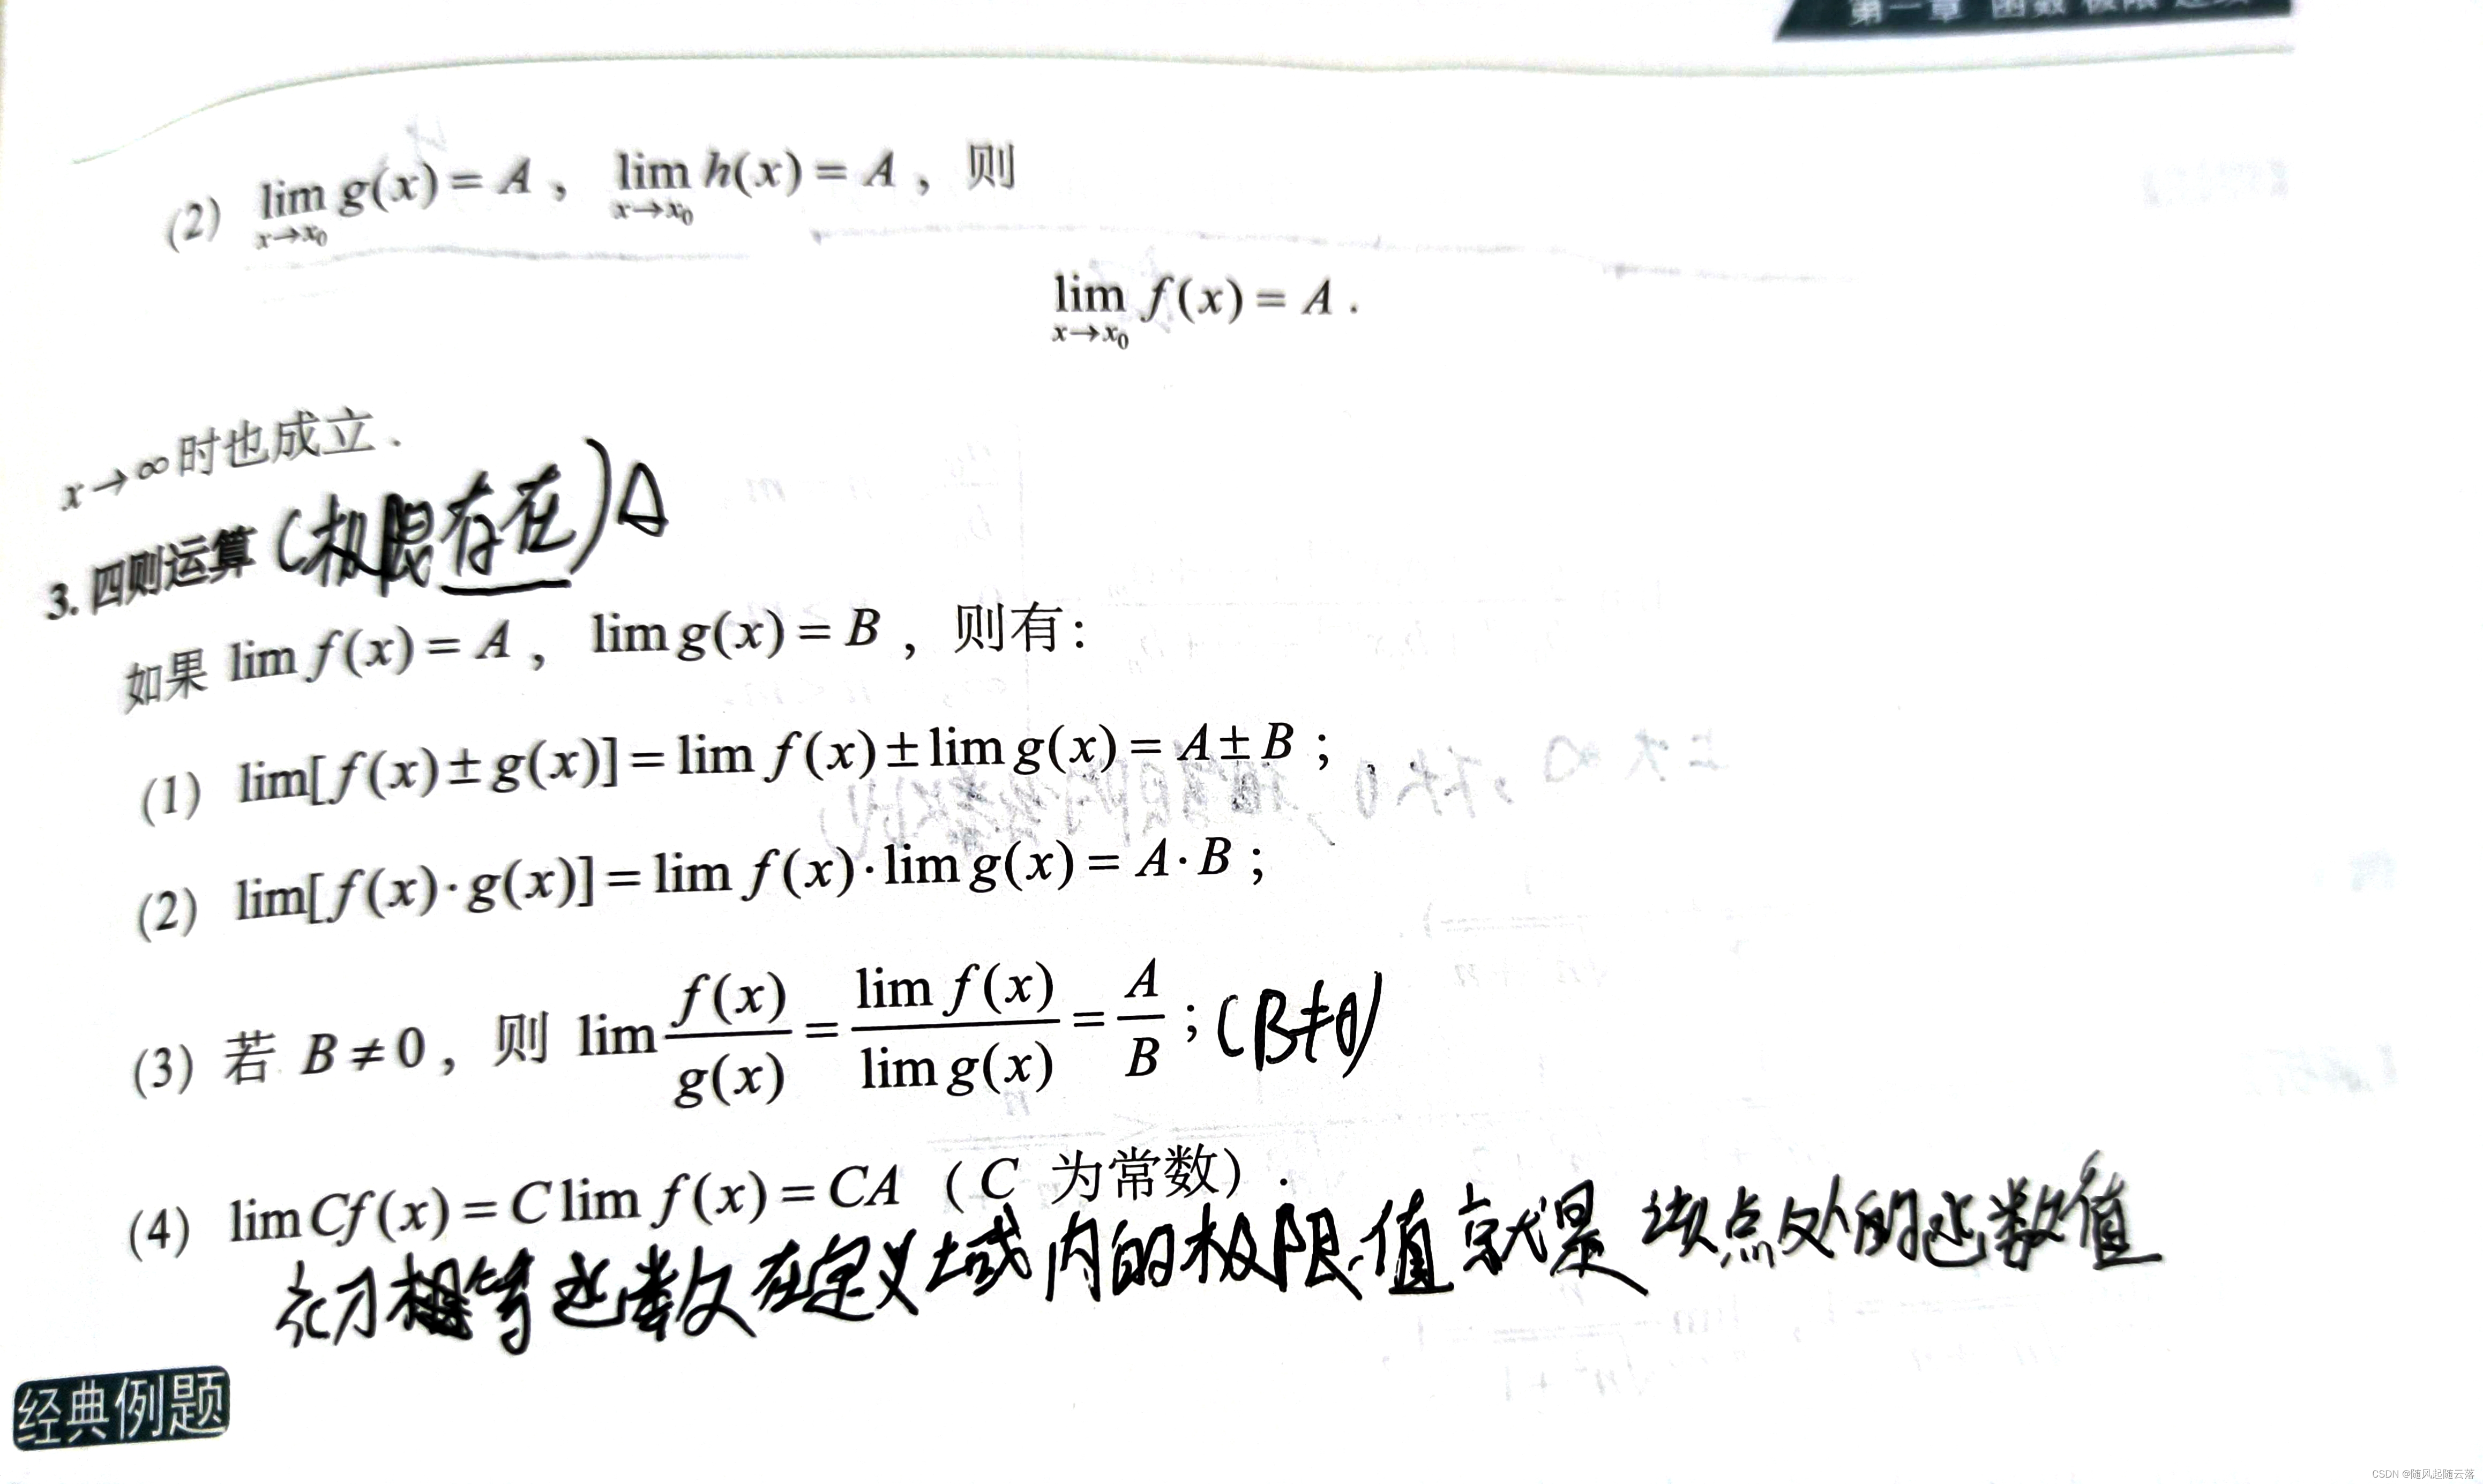 第一章 函数 极限 连续
(2) lim_{x→x₀} g(x) = A , lim_{x→x₀} h(x) = A , 则
lim_{x→x₀} f(x) = A .
x→∞时也成立 .
3. 四则运算 (极限存在) Δ
如果 lim f(x) = A , lim g(x) = B , 则有:
(1) lim[f(x) ± g(x)] = lim f(x) ± lim g(x) = A ± B ;
(2) lim[f(x)·g(x)] = lim f(x)·lim g(x) = A·B ;
(3) 若 B ≠ 0 , 则 lim f(x)/g(x) = lim f(x)/lim g(x) = A/B ; (B≠0)
(4) lim Cf(x) = C lim f(x) = CA ( C 为常数) .
初等函数在定义域内的极限值就是该点处的函数值
经典例题
CSDN @随风起随云落